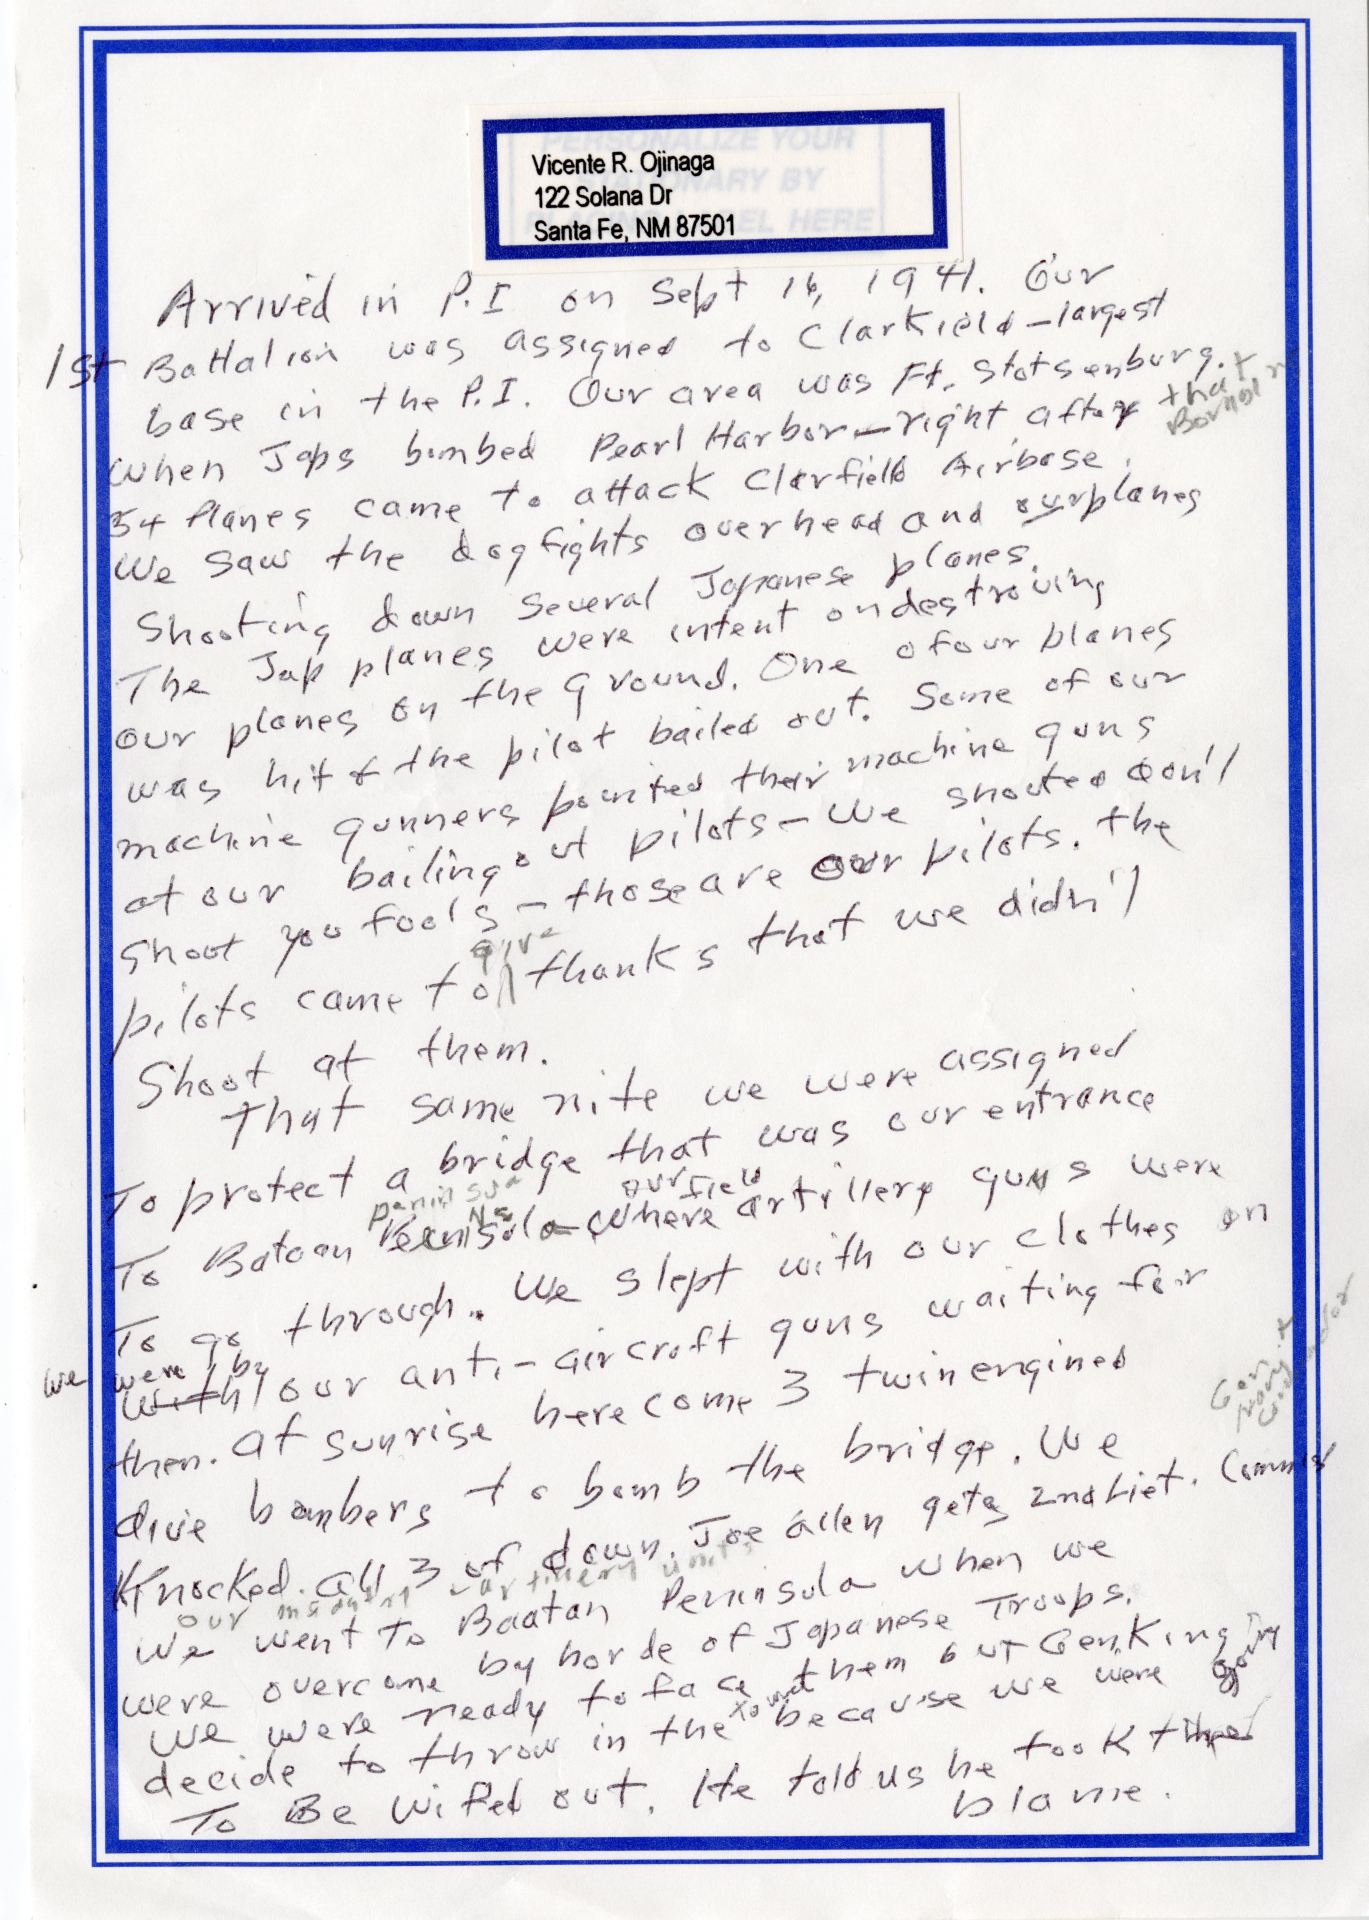 PERSONALIZE YOUR
STATIONARY BY
PLACING LABEL HERE
Vicente R. Ojinaga
122 Solana Dr
Santa Fe, NM 87501
Arrived in P.I on Sept 16, 1941. Our
1st Battalion was assigned to Clarkfield - largest
base in the P.I. Our area was Ft. Stotsenburg.
When Japs bombed Pearl Harbor - right after that
54 Planes came to attack Clarfield Airbase.
We saw the dogfights overhead and our planes
Shooting down several Japanese planes.
The Jap planes were intent on destroving
our planes on the ground. One of our planes
was hit & the pilot bailed out. Some of our
machine gunners pointed their machine guns
at our bailing out pilots - We shouted don't
shoot you fools - those are our pilots. The
pilots came to give thanks that we didn't
Shoot at them.
That same nite we were assigned
To protect a bridge that was our entrance
To Bataan Peninsula where our field artillery guns were
peninsula
To go through. We slept with our clothes on
we were by with our anti-aircraft guns waiting for
then. At sunrise here come 3 twin engined
dive bombers to bomb the bridge. We
Knocked all 3 of down. Joe Allen gets 2nd Liet.
our artillery units
We went to Baatan Peninsula when we
were overcome by horde of Japanese Troops.
We were ready to face them but Gen. King
decide to throw in the towel because we were going
To Be Wiped out. He told us he took the
blame.